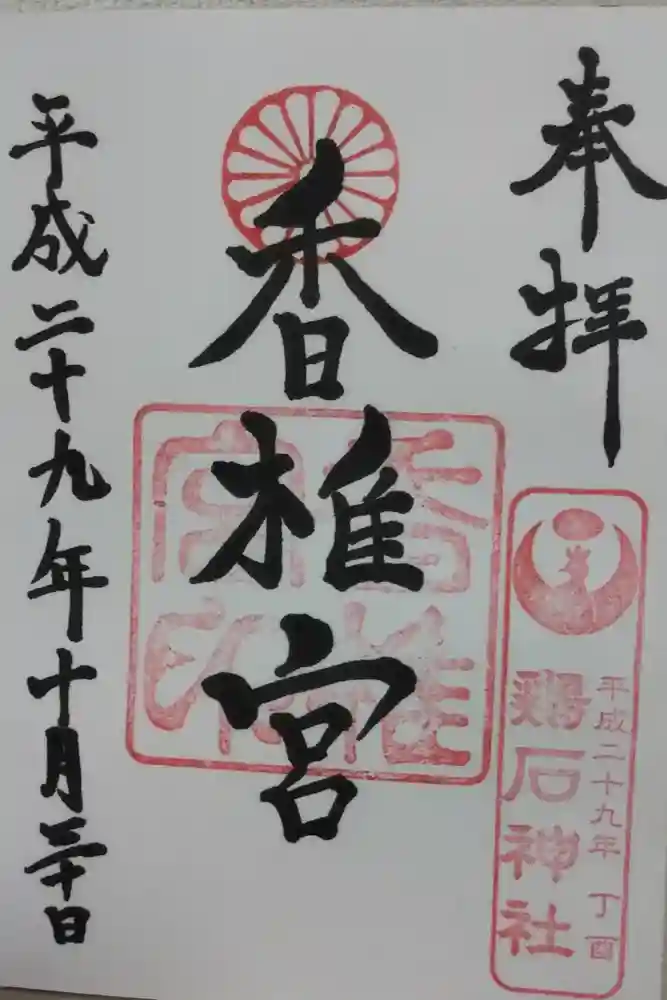 奉拝
平成二十九年 丁酉
鶏石神社
香椎宮
香椎宮印
平成二十九年十月三十日